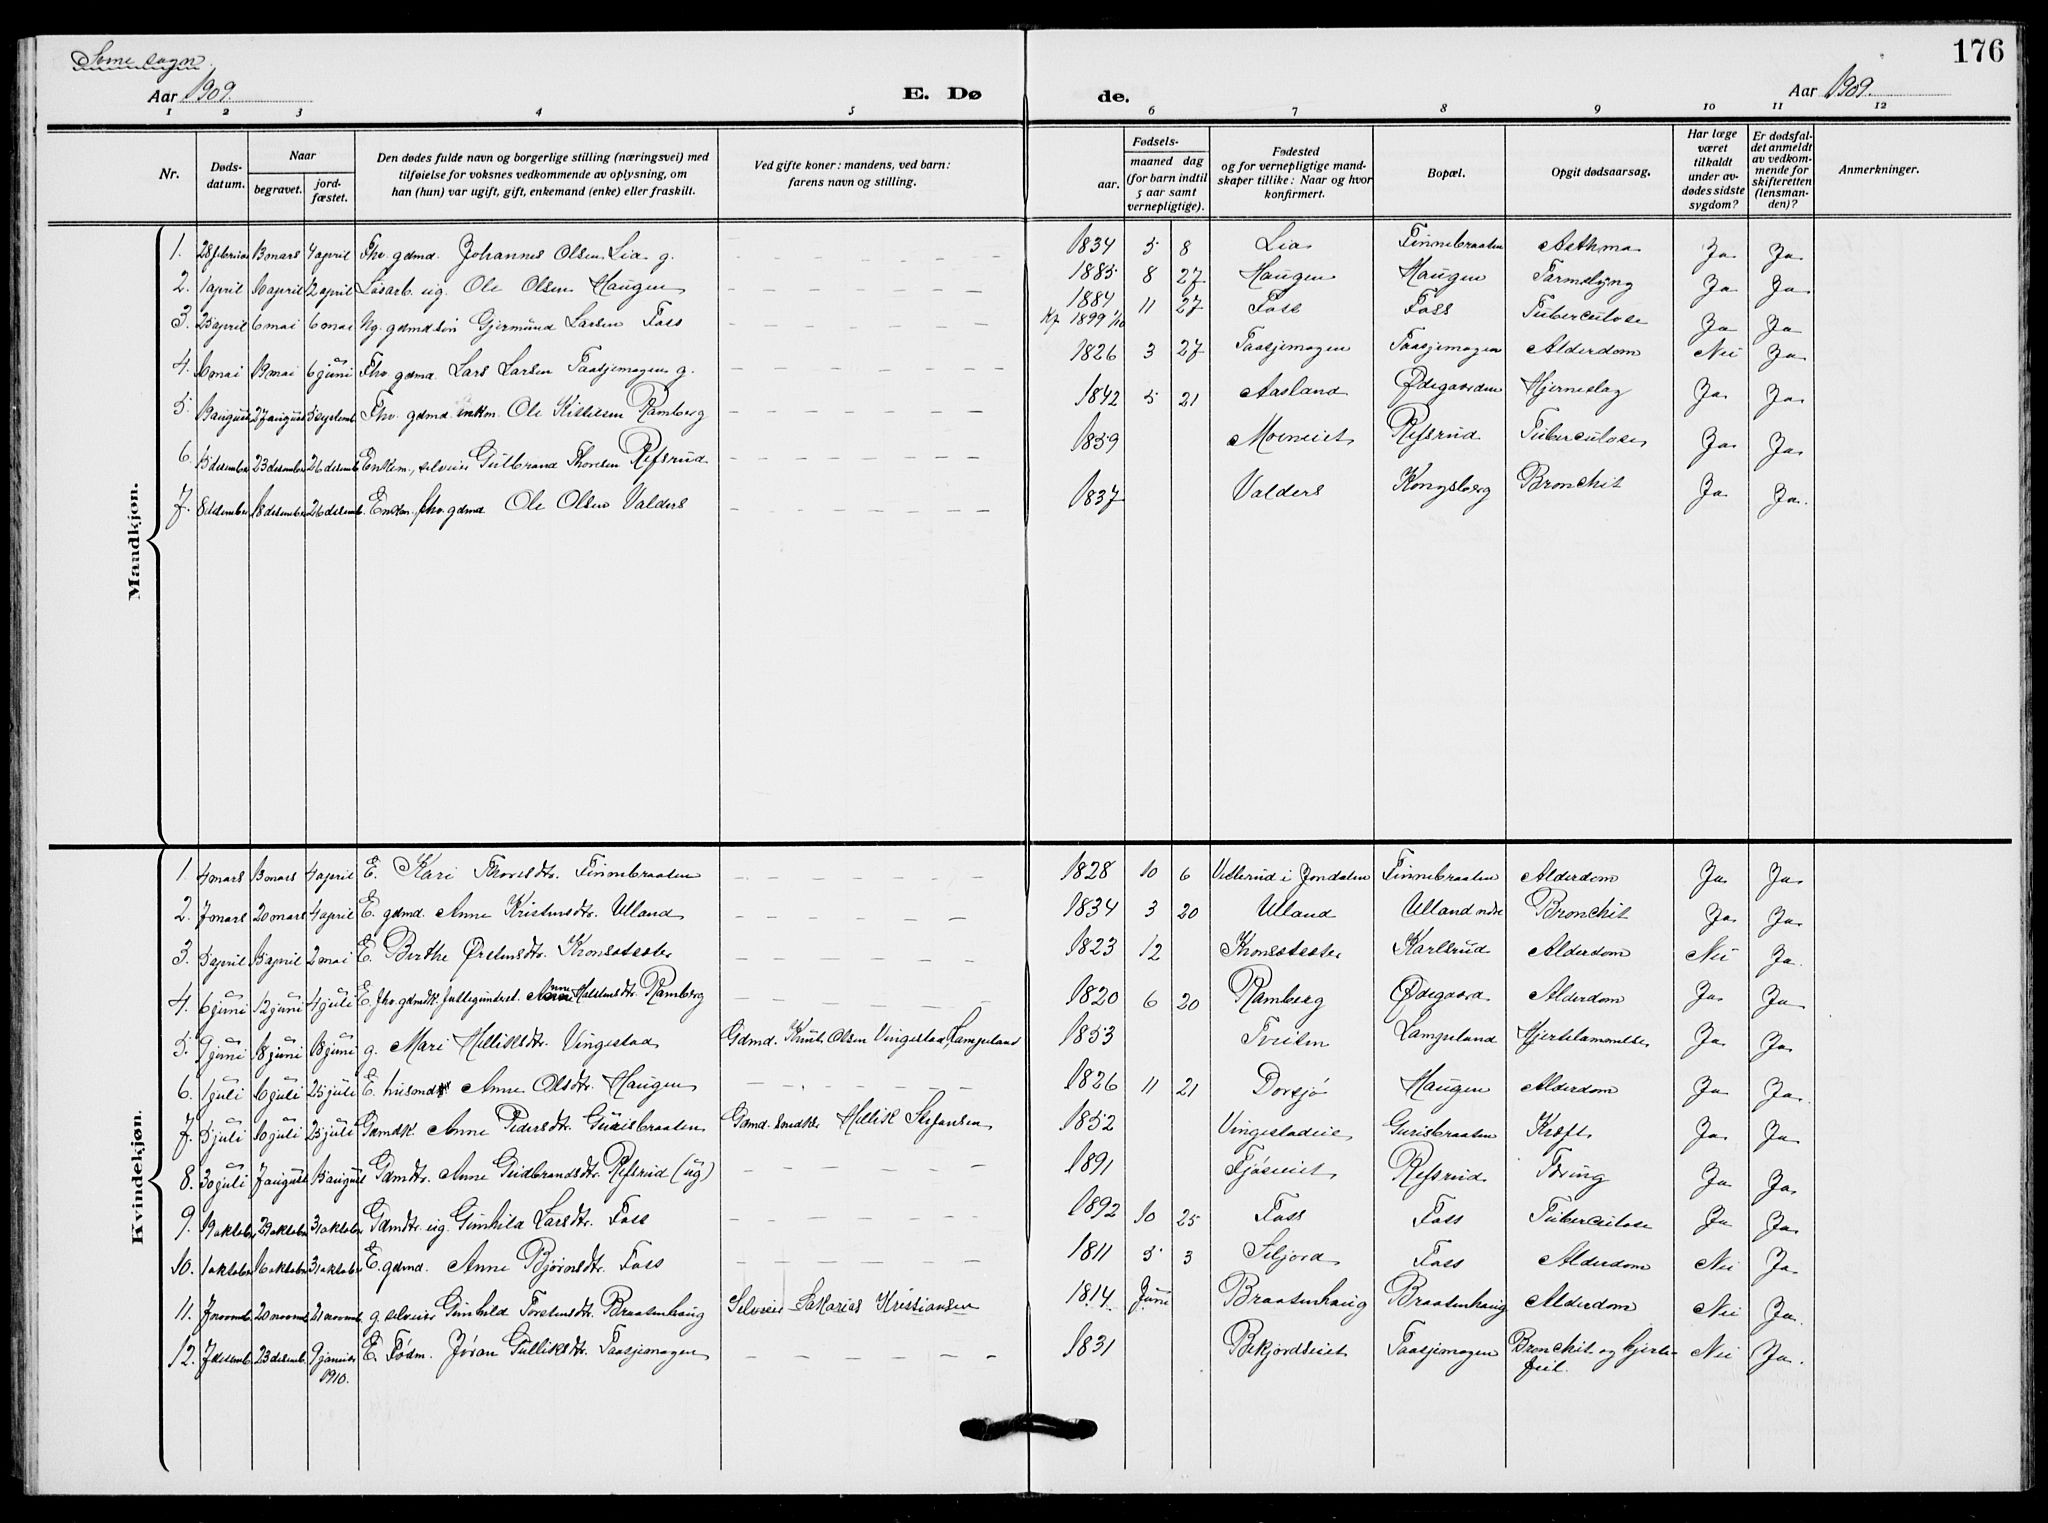 176
Aar 1909.
E. Dø de.
Aar 1909.
1 2 3 4 5 6 7 8 9 10 11 12
Nr.
Døds-datum.
Naar
begravet.
jord-fæstet.
Den dødes fulde navn og borgerlige stilling (næringsvei) med
tilføielse for voksnes vedkommende av oplysning, om
han (hun) var ugift, gift, enkemand (enke) eller fraskilt.
Ved gifte koner: mandens, ved barn:
farens navn og stilling.
Fødsels-
aar.
maaned dag
(for barn indtil
5 aar samt
vernepligtige).
Fødested
og for vernepligtige mand-
skaper tillike: Naar og hvor
konfirmert.
Bopæl.
Opgit dødsaarsag.
Har læge
været
tilkaldt
under av-
dødes sidste
sygdom?
Er dødsfal-
det anmeldt
av vedkom-
mende for
skifteretten
(lensman-
den)?
Anmerkninger.
Mandkjøn.
1. 28 februar 13 mars 4 april Fhv. gdmd. Johannes Olsen Lia g. 1834 5 8 Lia Finnebraaten Asthma Ja Ja
2. 1 april 10 april 2 april Løsarb. ug. Ole Olsen Haugen 1885 8 27 Haugen Haugen Tarmslyng Ja Ja
3. 25 april 6 mai 6 mai Ug. gdmdsøn Gjermund Larsen Foss 1884 11 27 Foss Foss Tuberculose Ja Ja
Kf. 1899 1/10
4. 10 mai 19 mai 6 juni Fhv. gdmd. Lars Larsen Taasjemogen g. 1826 3 27 Taasjemogen Taasjemogen Alderdom Nei Ja
5. 18 august 27 august 5 septemb. Fhv. gdmd. enkm. Ole Kittilsen Ramberg 1842 5 21 Aasland Ødegaarden Hjerneslag Ja Ja
6. 15 desember 23 desember 26 desemb. Enkem., selveier Gulbrand Thorsen Refsrud 1859 Moeneiet Refsrud Tuberculose Ja Ja
7. 8 desember 18 desember 26 desemb. Enkm. fhv. gdmd. Ole Olsen Valders 1837 Valders Kongsberg Bronchit Ja Ja.
Kvindekjøn.
1. 4 mars 13 mars 4 april E. Kari Thovsdtr. Finnebraaten 1828 10 6 Villerud i Jondalen Finnebraaten Alderdom Ja Ja
2. 7 mars 20 mars 4 april E. gdmd. Anne Kristensdtr. Ulland 1834 3 20 Ulland Ulland ndre Bronchit Ja Ja
3. 5 april 15 april 2 mai E. Berthe Østensdtr. Kronsetseter 1823 12 Kronsetseter Karlsrud Alderdom Nei Ja.
4. 6 juni 12 juni 4 juli E. fhv. gdmdk. Anne Halstensdtr. Ramberg 1820 6 20 Ramberg Ødegaard Alderdom Ja Ja
5. 9 juni 18 juni 18 juni g. Mari Helliksdtr. Vingestad Gdmd. Knut Olsen Vingestad, Lampeland 1853 Tveiten Lampeland Hjertelammelse Ja Ja
6. 1 juli 10 juli 25 juli E. husmds Anne Olsdtr. Haugen 1826 11 21 Dorsjö Haugen Alderdom Ja Ja.
7. 5 juli 10 juli 25 juli Gdmdk. Anne Pedersdtr. Gurisbraaten Gdmd. snedker Hellik Stefansen 1852 Vingestadeie Gurisbraaten Kræft Ja Ja
8. 30 juli 7 august 15 august Gdmdtr. Anne Gudbrandsdtr. Refsrud (ug) 1891 Fjøseiet Refsrud Tæring Ja Ja
9. 19 oktober 29 oktober 31 oktober Gdmdtr. ug. Gunhild Larsdtr. Foss 1892 10 25 Foss Foss Tuberculose Ja Ja
10. 1 oktober 16 oktober 31 oktober E. gdmd. Anne Bjørnsdtr. Foss 1811 5 3 Seljord Foss Alderdom Nei Ja
11. 7 novemb. 20 novemb. 21 novemb. g. selveier Gunhild Torstensdtr. Braatenhaug Selveier Sakarias Kristiansen 1814 Juni Braatenhaug Braatenhaug Alderdom Nei Ja.
12. 7 desemb. 23 desemb. 9 januar 1910. E. Fødm. Jøran Gulliksdtr. Taasjemogen 1831 Bekjordseiet Taasjemogen Bronchit og hjerte-
feil. Nei Ja.